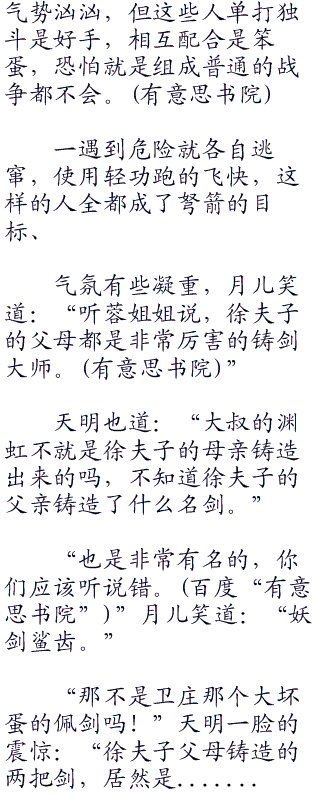 气势汹汹，但这些人单打独
斗是好手，相互配合是笨
蛋，恐怕就是组成普通的战
争都不会。(有意思书院)
一遇到危险就各自逃
窜，使用轻功跑的飞快，这
样的人全都成了弩箭的目
标、
气氛有些凝重，月儿笑
道：“听蓉姐姐说，徐夫子
的父母都是非常厉害的铸剑
大师。(有意思书院)”
天明也道：“大叔的渊
虹不就是徐夫子的母亲铸造
出来的吗，不知道徐夫子的
父亲铸造了什么名剑。”
“也是非常有名的，你
们应该听说错。(百度“有意
思书院”)”月儿笑道：“妖
剑鲨齿。”
“那不是卫庄那个大坏
蛋的佩剑吗！”天明一脸的
震惊：“徐夫子父母铸造的
两把剑，居然是.......